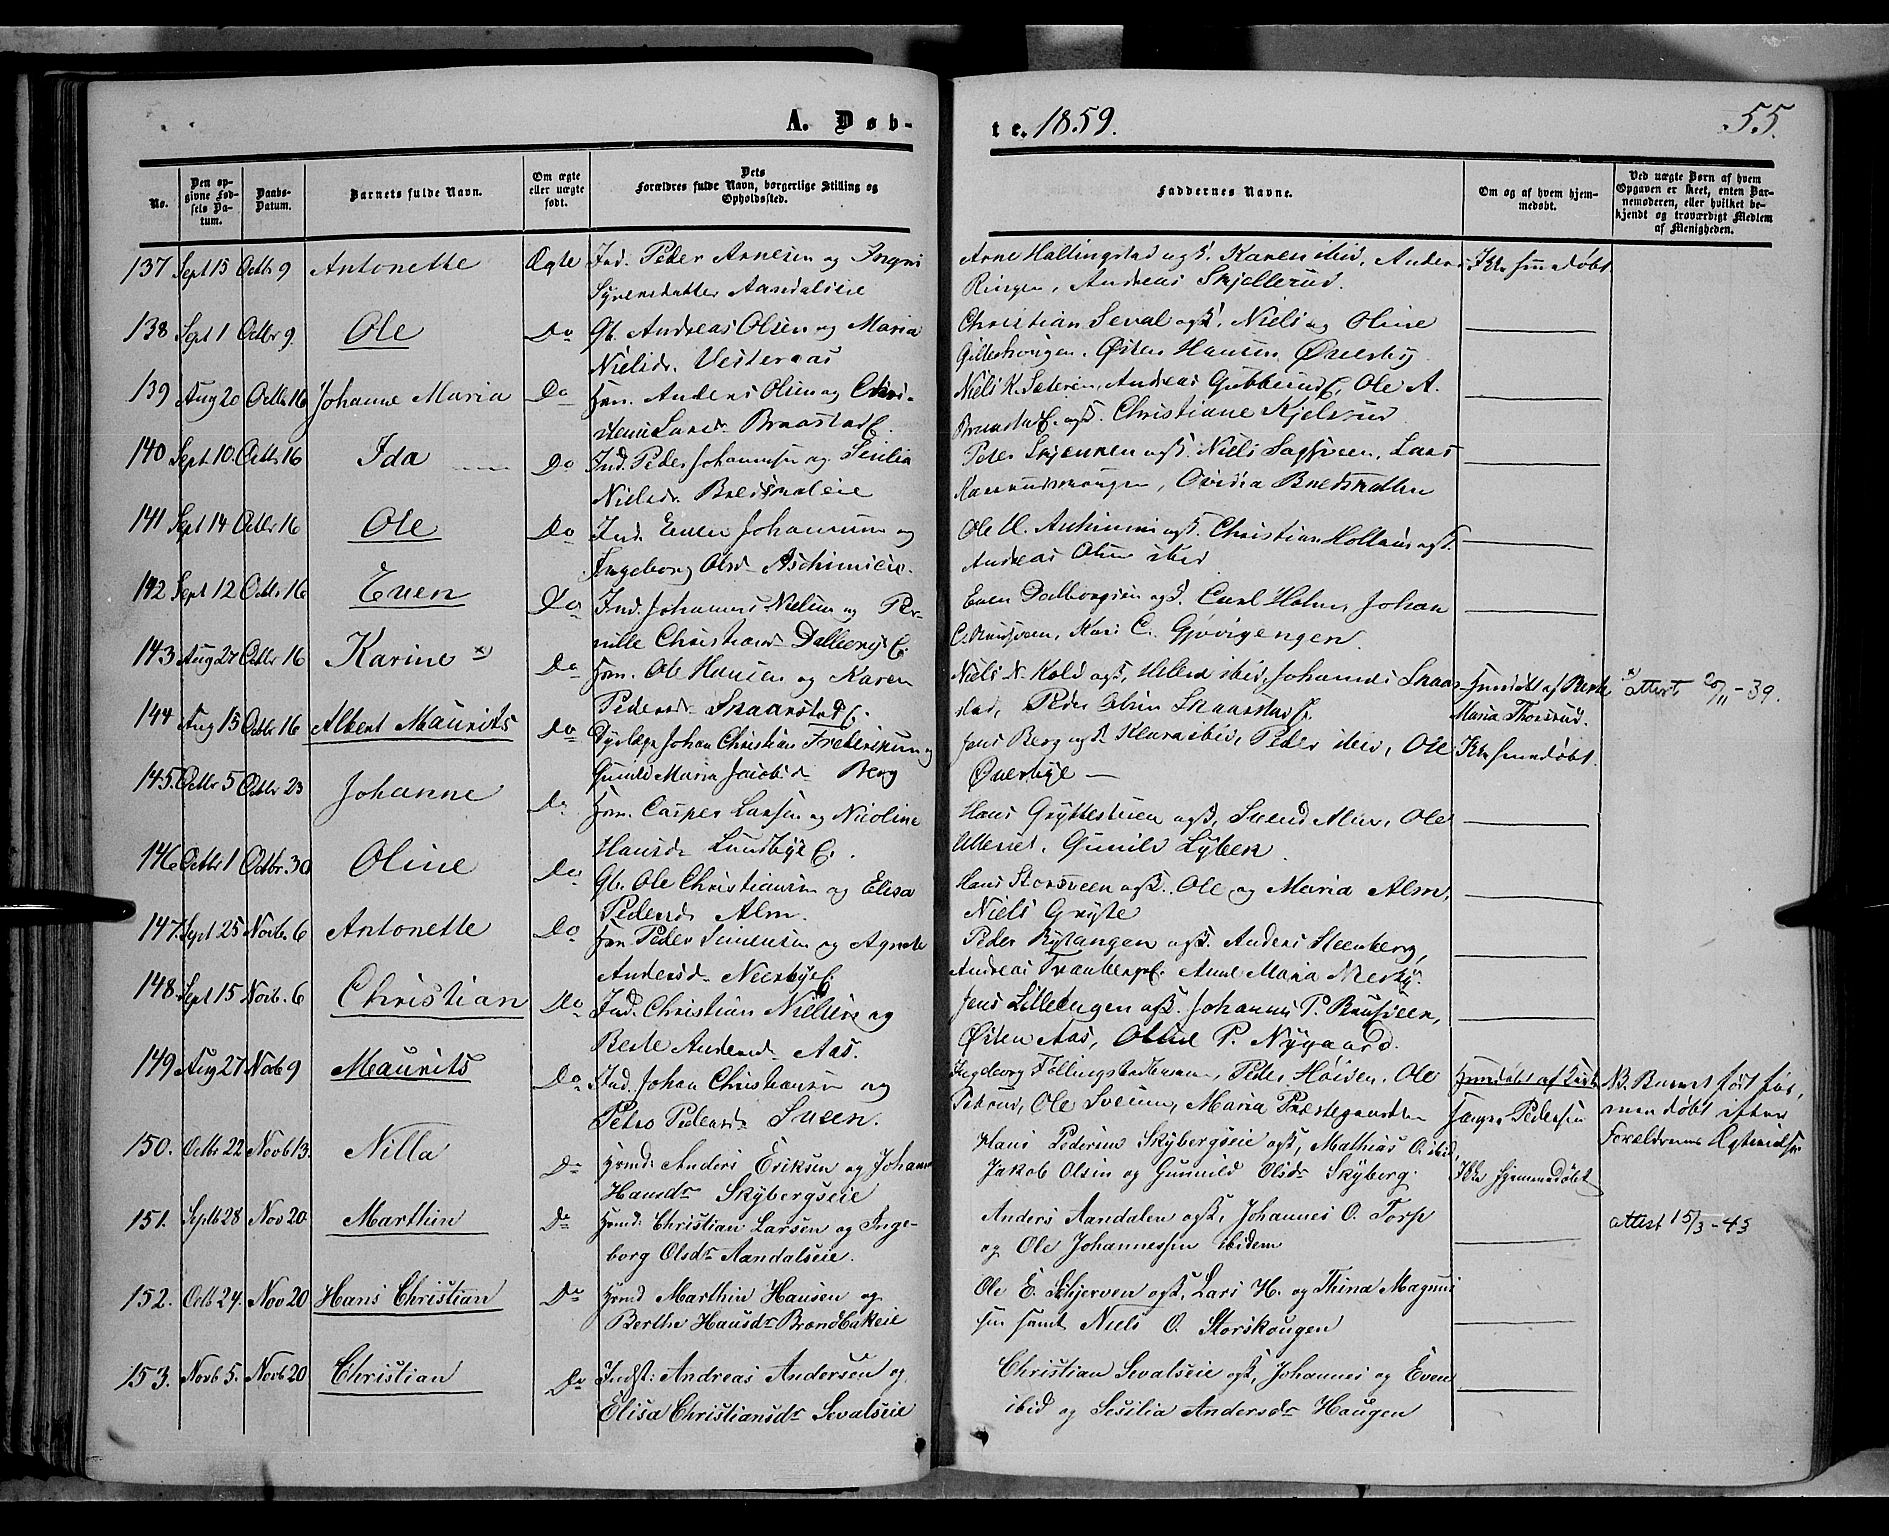 A. Døb-
te. 1859.
55.
No.
Den op-
givne Fød-
sels Da-
tum.
Daabs-
Datum.
Barnets fulde Navn.
Om ægte
eller uægte
født.
Dets
Forældres fulde Navn, borgerlige Stilling og
Opholdssted.
Faddernes Navne.
Om og af hvem hjem-
medøbt.
Ved uægte Børn af hvem
Opgaven er skeet, enten Bar-
nemoderen, eller hvilket be-
kjendt og troværdigt Medlem
af Menigheden.
137 Sept 15 Octbr 9 Antonette Ægte Ind. Peder Arnesen og Ingri
Syversdatter Aandalseie
Arne Hallingstad og K. Karen ibid, Anders
Ringen, Andreas Skjellerud.
138 Sept 1 Octbr 9 Ole Do Gb. Andreas Olsen og Maria
Nielsdr. Vesteraas
Christian Seval og K. Niels og Oline
Østen Hansen Øverby
139 Aug 20 Octbr 16 Johanne Maria Do Hm. Anders Olsen og Chri-
Larsdr. Braastad E.
Niels K. Sateren, Andreas Ole A.
Braastad E. og K. Christiane Kjelsrud
140 Sept. 10 Octbr 16 Ida Do Ind. Peder Johannesen og Sicilia
Nielsdr. Bredsmaleie
Peter Skjerven og K. Niels Sagsveen, Lars
141 Sept 14 Octbr 16 Ole Do Ind. Even Johannesen og
Ingeborg Olsdr. Aschimseie.
Ole H. og K. Christian og K.
Andreas Olsen ibid
142 Sept 12 Octbr 16 Even Do Ind. Johannes Nielsen og Per-
nille Christiansdr. Dalborgs E.
Even Dalborgseie og K. Carl Holm, Johan
Kari C. Gjøvigengen.
143 Aug 27 Octbr 16 Karine x Do Hm. Ole Hansen og Karen
Pedersdr. Skaarstad E.
Niels N. Kold og K, Helene ibid, Johannes Skaar-
stad, Peder Olsen Skaarstad E.
Hjemdøbt af
Maria Thorsrud.
x attest 20/11-39.
144 Aug 13 Octbr 16 Albert Mauritz Do Dyrlæge Johan Christian Frederiksen og
Gunild Maria Jacobsdr. Berg
Jens Berg og K. Klara ibid, Peder ibid, Ole
Øverbye —
Ikke hjemmedøbt.
145. Octbr 5 Octbr 23 Johanne Do Hm. Casper Larsen og Nicoline
Hansdr. Lundbye E.
Hans Gryttestuen og K, Svend Alm, Ole
Ullerud, Gunild Lyben
146 Octbr 1 Octbr. 30 Oline Do Gb. Ole Christiansen og Elisa
Pedersdr Alm.
Hans Storsveen og K. Ole og Maria Alm,
Niels Gryte
147 Sept 25 Novbr. 6 Antonette Do Hm. Peder Simensen og Agnete
Andersd. Neerbye E
Peder Rystangen og K. Anders Steenberg,
Andreas Tranberg E. Anne Maria Neerby.
148. Sept 15 Novb. 6 Christian Do Ind. Christian Nielsen og
Berte Andersdr. Aas.
Jens Lilleengen og K. Johannes P. Bruusveen,
Østen Aas, Oline P. Nygaard.
149 Aug 27 Novb 9 Mauritz Do Ind. Johan Christiansen og
Petro Pedersdr Sveen.
Ingeborg Føllingstadsveen, Peder Høiden, Ole
Ole Sveum, Maria Præstegaarden
Hjemdøbt af
Jørgen Pedersen
NB. Barnet født før,
men døbt efter
Forældrenes Ægtevielse
150. Octbr 22 Novb 13. Nilla Do Hmd: Anders Eriksen og Johanne
Hansdr Skybergseie
Hans Pedersen Skybergseie og K, Mathias O. ibid,
Jakob Olsen og Gunnild Olsdr Skyberg.
Ikke hjemmedøbt
151. Septb 28 Nov 20 Marthin Do Hmd: Christian Larsen og Inge-
borg Olsdr Aandalseie.
Anders Aandalen og K, Johannes O. Torp
og Ole Johannessen ibidem
attest 15/3-43
152. Octb 24. Nov 20 Hans Christian Do Hmd Marthin Hansen og
Berthe Hansdr Brandbakeie
Ole E. Skjerven og K, Lars H. og Thina Magnus-
sen samt Niels O. Storskougen
153. Novb 5. Novb 20 Christian Do Indst: Andreas Andersen og
Elisa Christiansdr Sevalseie
Christian Sevalseie og K, Johannes og Even
ibid og Sesilia Andersdr Haugen